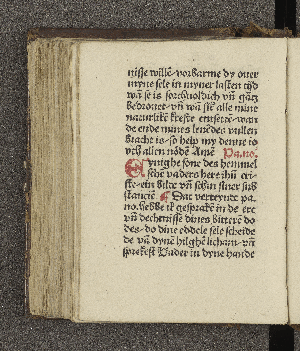 nisse wille vorbarme dy over
myne sele in myner lasten tijd
wā se is sorchuoldich vn̄ gātz
bedrouet vn̄ wā alle mine
naturlike krefte
de ende mines leuēdes vullen
bracht is so help my denne io
vth allen nōdē Amē Pa. no.
Ewighe sone des hemmel
schē vaders here ihū cri
ste ein bilde vn̄ schin siner sub
stancie Dat veerteynde pa.
no. hebbe ik gesprakē in de ere
vn̄ dechtnisse dines bitterē do
des do dine eddele sele scheide
de vā dynē hilghē licham vn̄
sprekest Vader in dyne hande